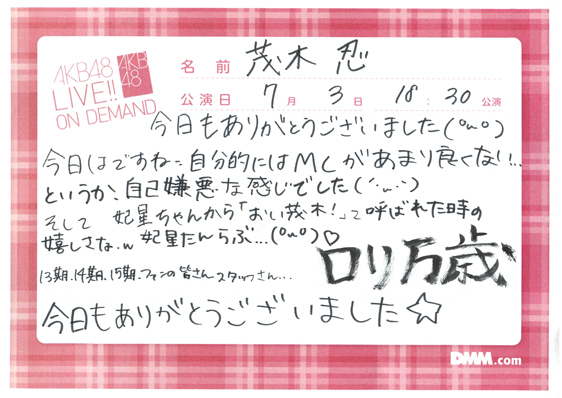 AKB48
LIVE!!
ON DEMAND
AKB
48
名前 茂木 忍
公演日 7月 3日 18:30公演
今日もありがとうございました(^ω^)
今日はですね、自分的にはMCがあまり良くない...
というか、自己嫌悪な感じでした(´・ω・`)
そして 妃星ちゃんから「おい茂木!」って呼ばれた時の
嬉しさな.w 妃星たんらぶ...(^ω^)♡
ロリ万歳
13期、14期、15期、ファンの皆さん スタッフさん...
今日もありがとうございました☆
DMM.com